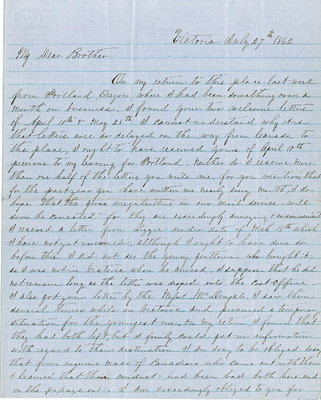 Victoria July 27th 1862
My Dear Brother
On my return to this place last week
from Portland Oregon where I had been something over a
month on business. I found your two welcome letters
of April 10th & May 25th I cannot understand why it is
that letters are so delayed on the way from Canada to
this place, I ought to have received yours of April 10th
previous to my leaving for Portland. Neither do I receive more
than one half of the letters you write me for you mention that
for the past year you have written me nearly every month, I do
hope that the gross irregularities in our mail service will
soon be corrected for they are exceedingly annoying & inconvenient
I received a letter from Lizzie under date of Mch 11th which
I have not yet answered, although I ought to have done so
before this I did not see the young gentleman who brought it,
as I was not in Victoria when he arrived, I suppose that he did
not remain long as the letter was dropped into the Post Office.
I also got your letter by the Messrs I saw them
several times while in Victoria and promised a temporary
situation for the youngest one, on my return I found that
they had both left, but I could get no information
with regard to their destination. I am sorry to be obliged to say
that from enquiries made of Canadians who came out with them
I learned that their conduct had been bad, both here and
on the passage out. I am exceedingly obliged to you for